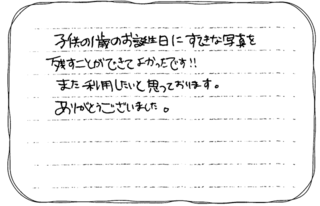 子供の1歳のお誕生日に すてきな写真を
残すことができてよかったです!!
また利用したいと思っております。
ありがとうございました。